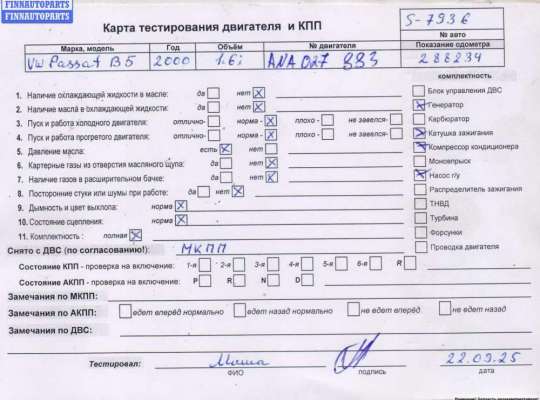 FINNAUTOPARTS
FINNAUTOPARTS
Карта тестирования двигателя и КПП
S-7936
№ авто
Марка, модель Год Объём № двигателя Показание одометра
VW Passat B5 2000 1.6i ANA 027 883 288234
комплектность
1. Наличие охлаждающей жидкости в масле: да нет
2. Наличие масла в охлаждающей жидкости: да нет
3. Пуск и работа холодного двигателя: отлично- норма - плохо - не завелся-
4. Пуск и работа прогретого двигателя: отлично- норма - плохо - не завелся-
5. Давление масла: есть нет
6. Картерные газы из отверстия масляного щупа: да нет
7. Наличие газов в расширительном бачке: да нет
8. Посторонние стуки или шумы при работе: да нет
9. Дымность и цвет выхлопа: норма
10. Состояние сцепления: норма
11. Комплектность : полная
Блок управления ДВС
Генератор
Карбюратор
Катушка зажигания
Компрессор кондиционера
Моновпрыск
Насос г/у
Распределитель зажигания
ТНВД
Турбина
Форсунки
Проводка двигателя
Снято с ДВС (по согласованию!): МКПП
Состояние КПП - проверка на включение: 1-я 2-я 3-я 4-я 5-я 6-я R
Состояние АКПП - проверка на включение: P R N D
Замечания по МКПП:
Замечания по АКПП: едет вперёд нормально едет назад нормально не едет вперёд не едет назад
Замечания по ДВС:
Тестировал: Миша 22.09.25
ФИО подпись дата